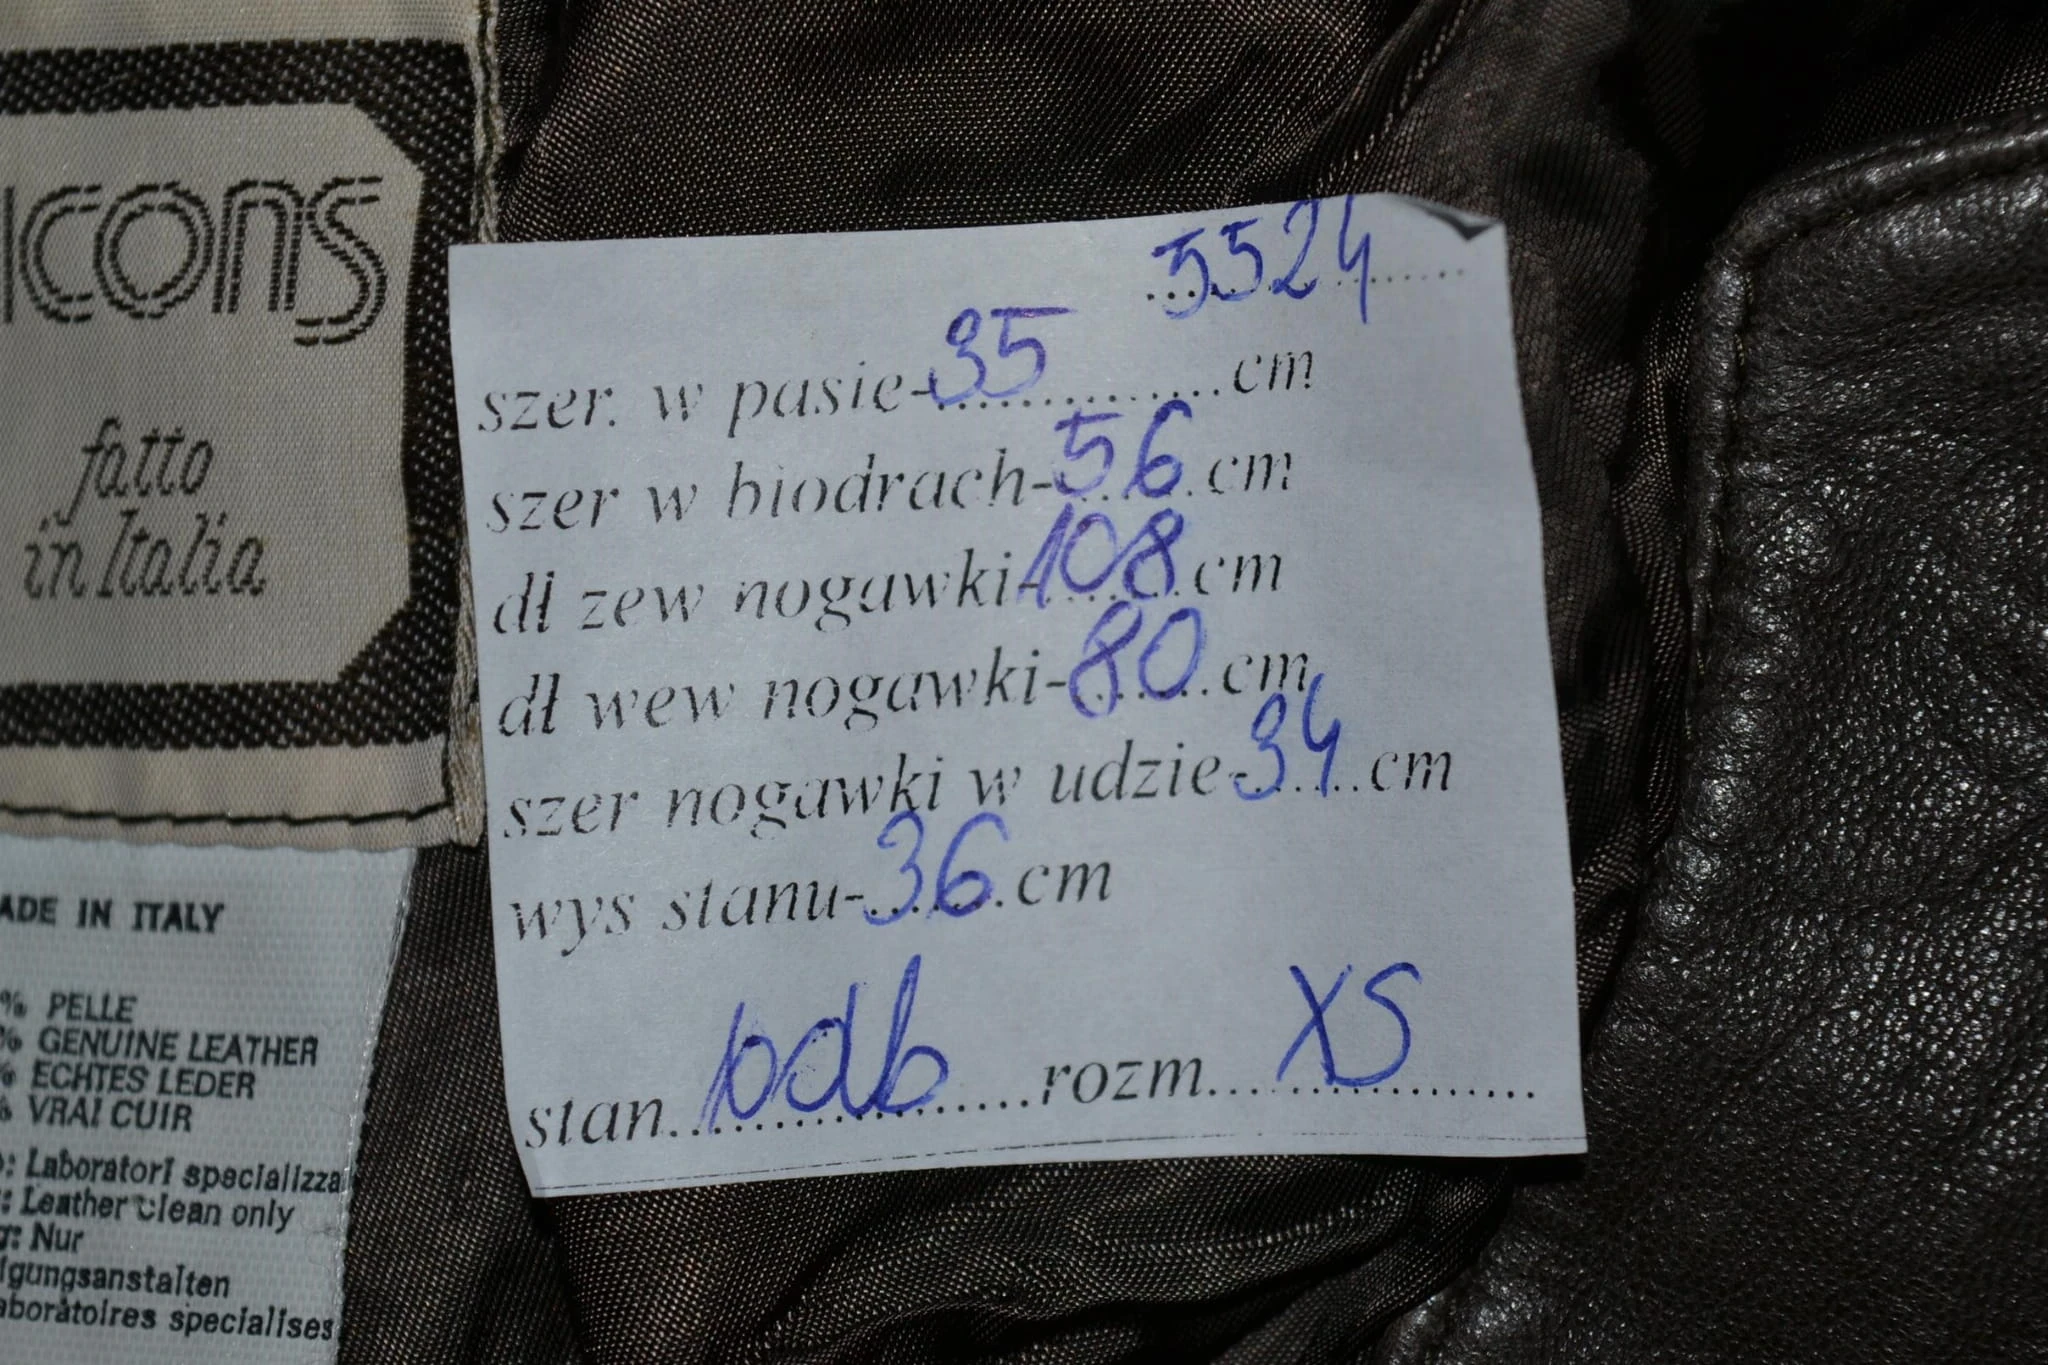 ICONS
fatto
in Italia
ADE IN ITALY
% PELLE
% GENUINE LEATHER
% ECHTES LEDER
% VRAI CUIR
: Laboratori specializza
: Leather clean only
: Nur
igungsanstalten
aboratoires specialises
5524
szer. w pasie-35..............cm
szer w biodrach-56.cm
dł zew nogawki-108.cm
dł wew nogawki-80.cm
szer nogawki w udzie-34...cm
wys stanu-36.cm
stan...pdb......rozm...XS........